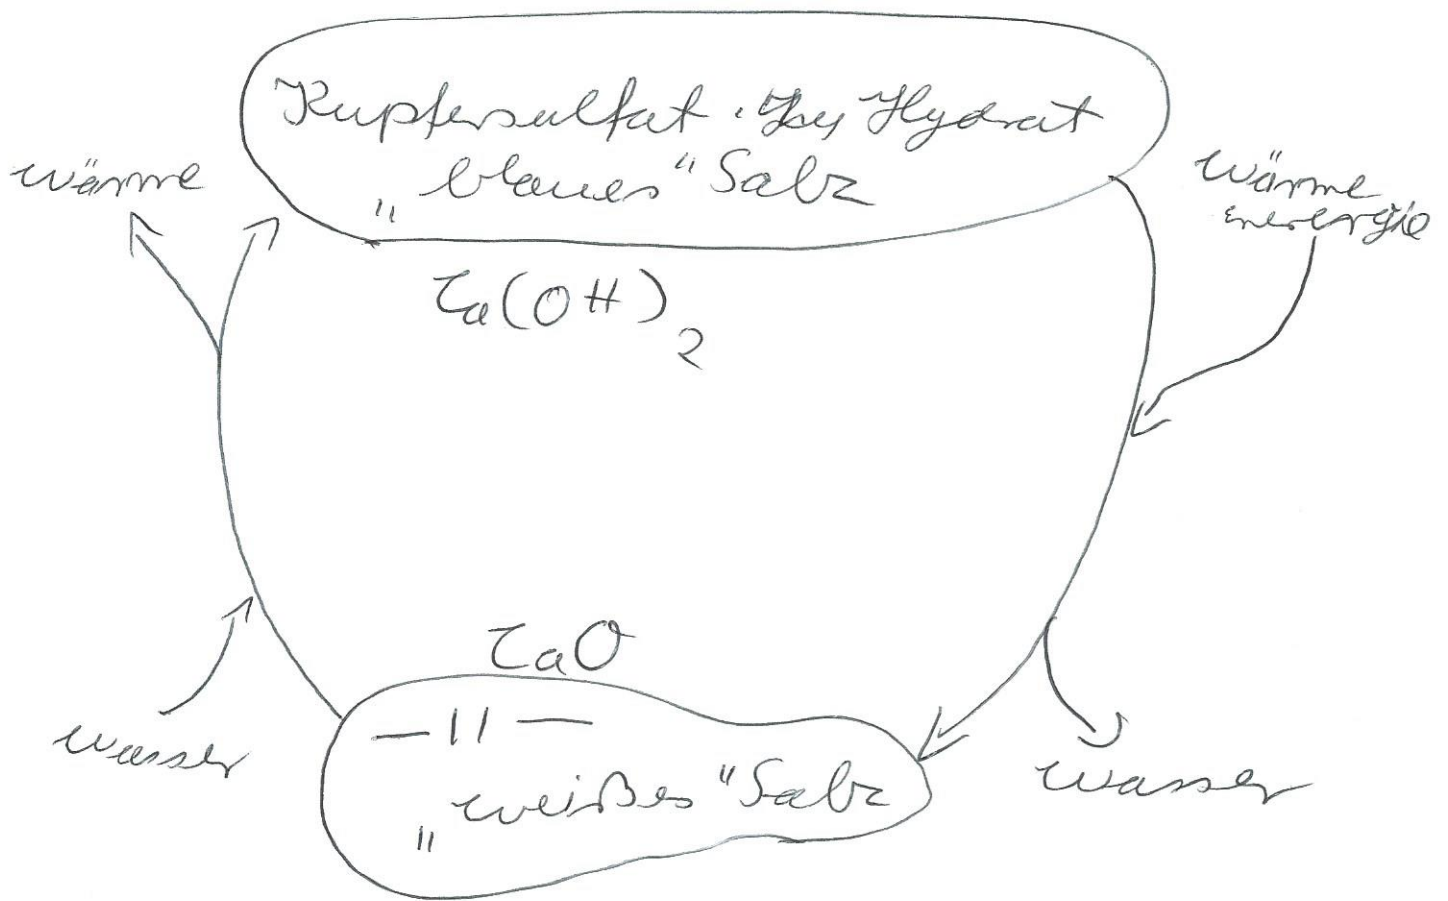 Kupfersulfat · Hydrat
„blaues“ Salz
Wärme
Wärme
energie
Ca(OH)2
CaO
—11—
„weißes“ Salz
Wasser
Wasser